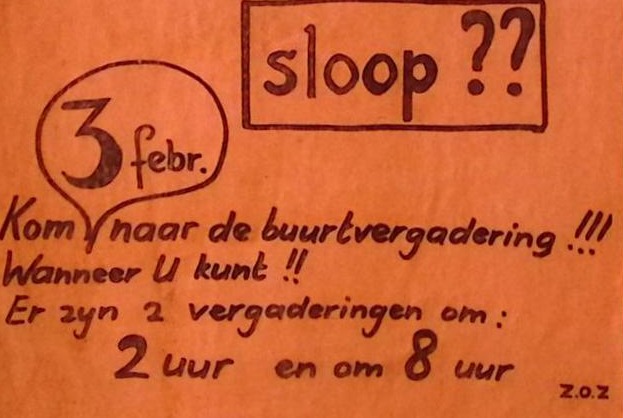 sloop ??
3 febr.
Kom naar de buurtvergadering !!!
Wanneer U kunt !!
Er zyn 2 vergaderingen om :
2 uur en om 8 uur
Z.O.Z